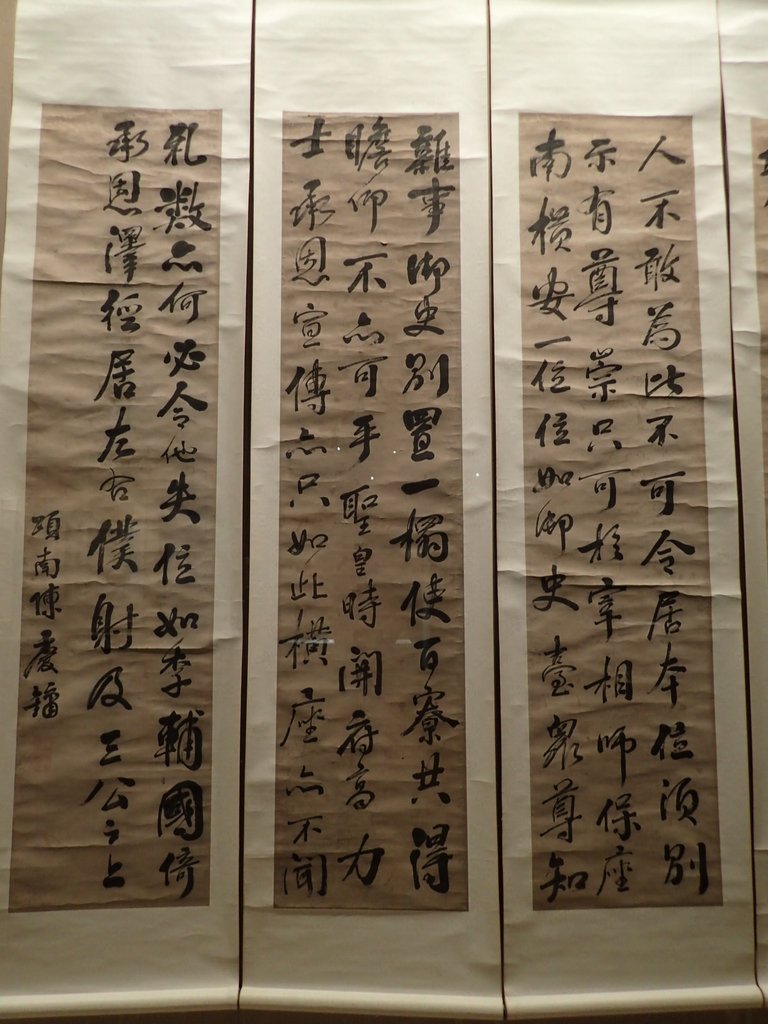 人不敢為此不可令居本位須別
示有尊崇只可於宰相師保座
南橫安一位位如御史臺眾尊知
雜事御史別置一榻使百寮共得
瞻仰不亦可乎聖皇時開府高力
士承恩宣傳亦只如此橫座亦不聞
礼數亦何必令他失位如李輔國倚
承恩澤徑居左右僕射及三公之上
頌南陳慶鏞